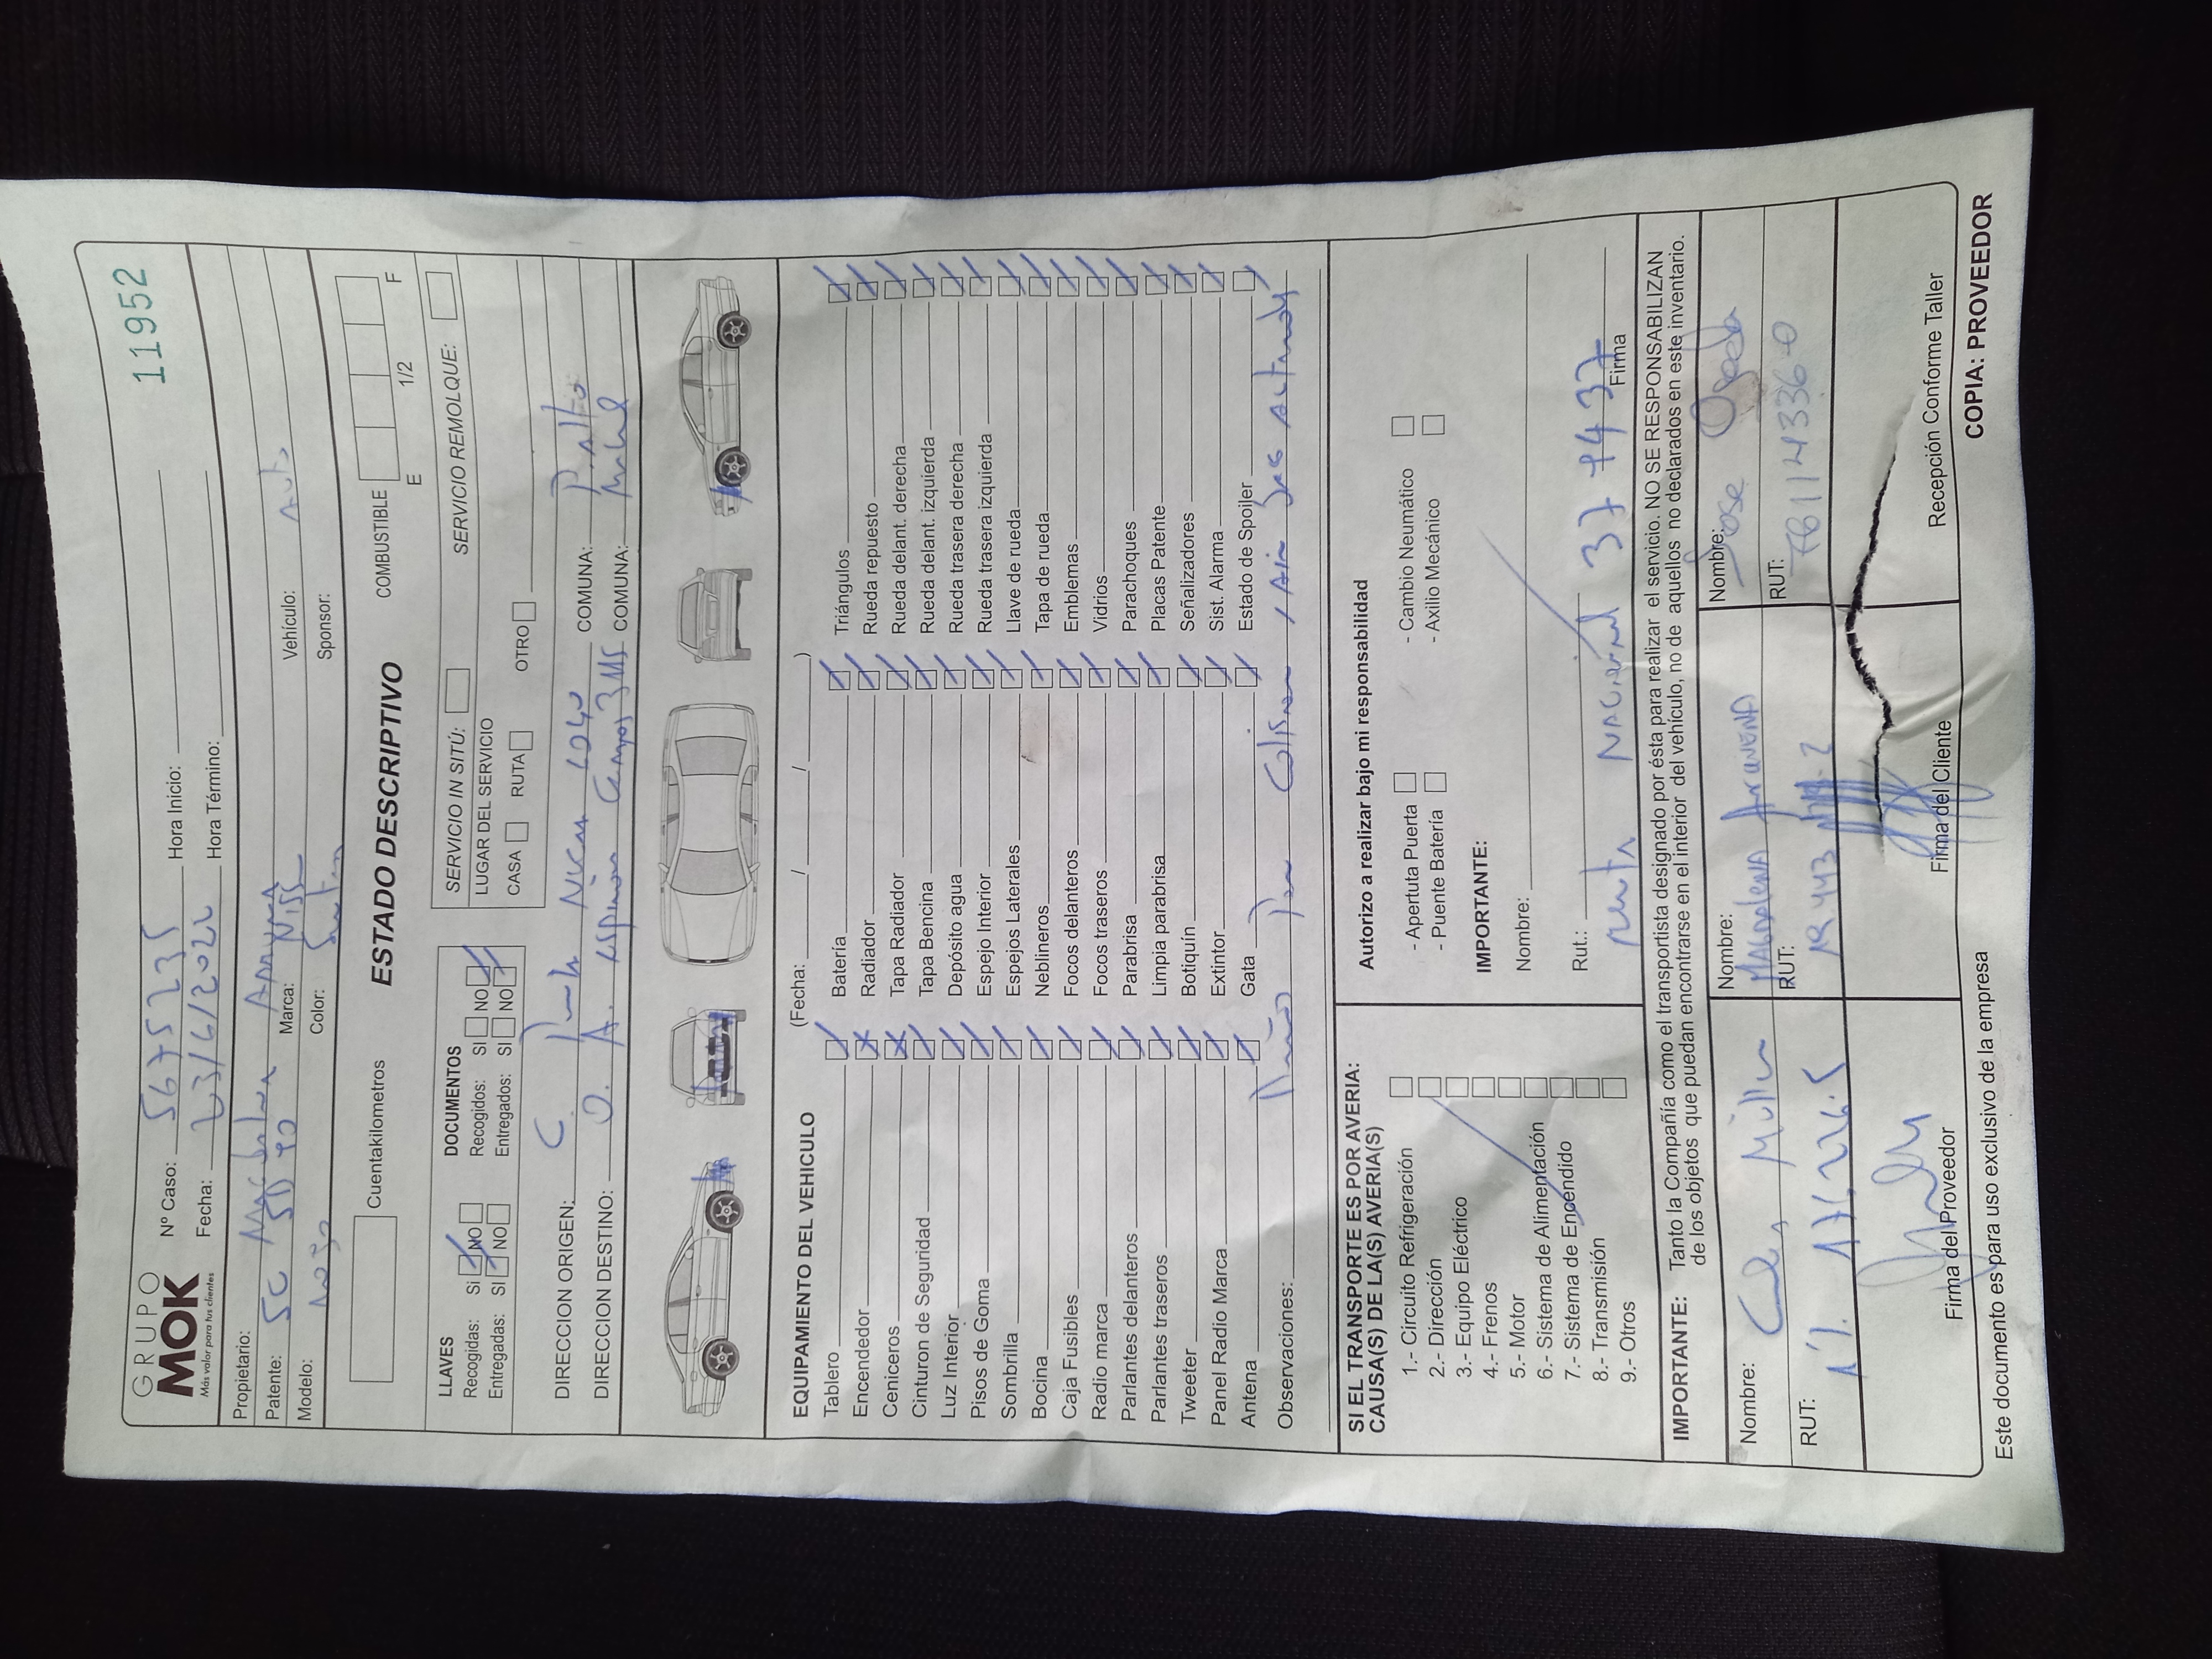 GRUPO
MOK
Más valor para tus clientes
11952
Nº Caso: 5675235 Hora Inicio:
Fecha: 23/6/2022 Hora Término:
Propietario: Magdalena Aravena
Patente: Marca: Niss Vehículo: Auto
Modelo: Color: Sponsor:
ESTADO DESCRIPTIVO
Cuentakilometros
COMBUSTIBLE
E 1/2 F
LLAVES
Recogidas: SI NO
Entregadas: SI NO
DOCUMENTOS
Recogidos: SI NO
Entregados: SI NO
SERVICIO IN SITÚ: SERVICIO REMOLQUE:
LUGAR DEL SERVICIO
CASA RUTA OTRO
DIRECCION ORIGEN: COMUNA:
DIRECCION DESTINO: COMUNA:
EQUIPAMIENTO DEL VEHICULO (Fecha: / / )
Tablero Batería Triángulos
Encendedor Radiador Rueda repuesto
Ceniceros Tapa Radiador Rueda delant. derecha
Cinturon de Seguridad Tapa Bencina Rueda delant. izquierda
Luz Interior Depósito agua Rueda trasera derecha
Pisos de Goma Espejo Interior Rueda trasera izquierda
Sombrilla Espejos Laterales Llave de rueda
Bocina Neblineros Tapa de rueda
Caja Fusibles Focos delanteros Emblemas
Radio marca Focos traseros Vidrios
Parlantes delanteros Parabrisa Parachoques
Parlantes traseros Limpia parabrisa Placas Patente
Tweeter Botiquín Señalizadores
Panel Radio Marca Extintor Sist. Alarma
Antena Gata Estado de Spoiler
Observaciones: Daños Por Colision
SI EL TRANSPORTE ES POR AVERIA:
CAUSA(S) DE LA(S) AVERIA(S)
1.- Circuito Refrigeración
2.- Dirección
3.- Equipo Eléctrico
4.- Frenos
5.- Motor
6.- Sistema de Alimentación
7.- Sistema de Encendido
8.- Transmisión
9.- Otros
Autorizo a realizar bajo mi responsabilidad
- Apertuta Puerta - Cambio Neumático
- Puente Batería - Axilio Mecánico
IMPORTANTE:
Nombre:
Rut.: Firma
IMPORTANTE: Tanto la Compañía como el transportista designado por ésta para realizar el servicio. NO SE RESPONSABILIZAN
de los objetos que puedan encontrarse en el interior del vehículo, no de aquellos no declarados en este inventario.
Nombre: Nombre: Magdalena Aravena Nombre: Jose
RUT: RUT: RUT:
Firma del Proveedor Firma del Cliente Recepción Conforme Taller
Este documento es para uso exclusivo de la empresa COPIA: PROVEEDOR